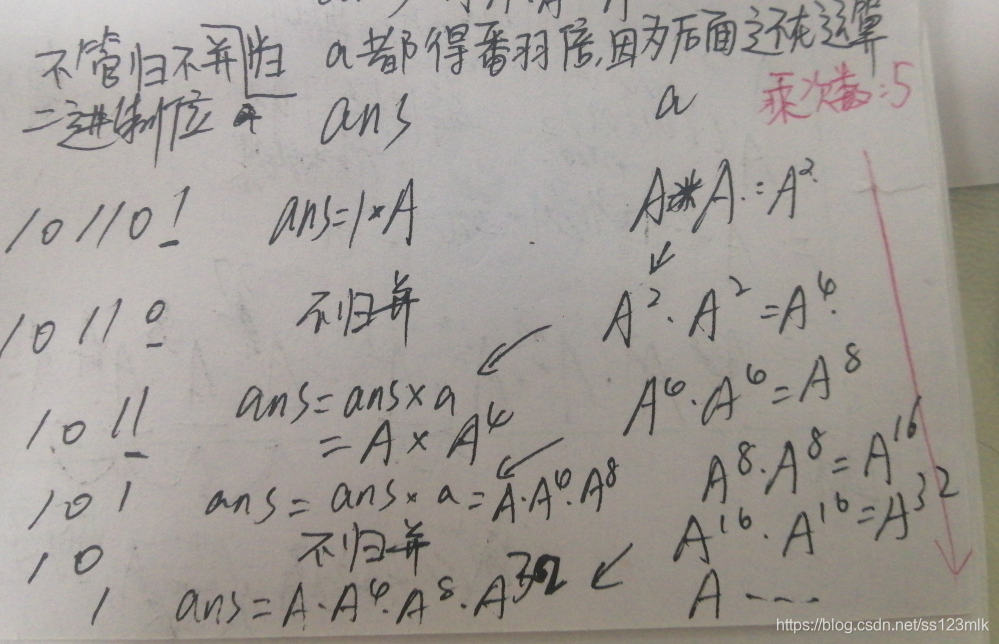 不管归不并归 a都得番羽倍,因为后面还能运算
二进制位 ans a 乘次数:5
101101 ans=1×A A*A.=A²
10110 不归并 A²·A²=A⁴.
1011 ans=ans×a A⁴·A⁴=A⁸
=A×A⁴
101 ans=ans×a=A·A⁴·A⁸ A⁸·A⁸=A¹⁶
10 不归并 A¹⁶·A¹⁶=A³²
1 ans=A·A⁴·A⁸·A³² A----
https://blog.csdn.net/ss123mlk